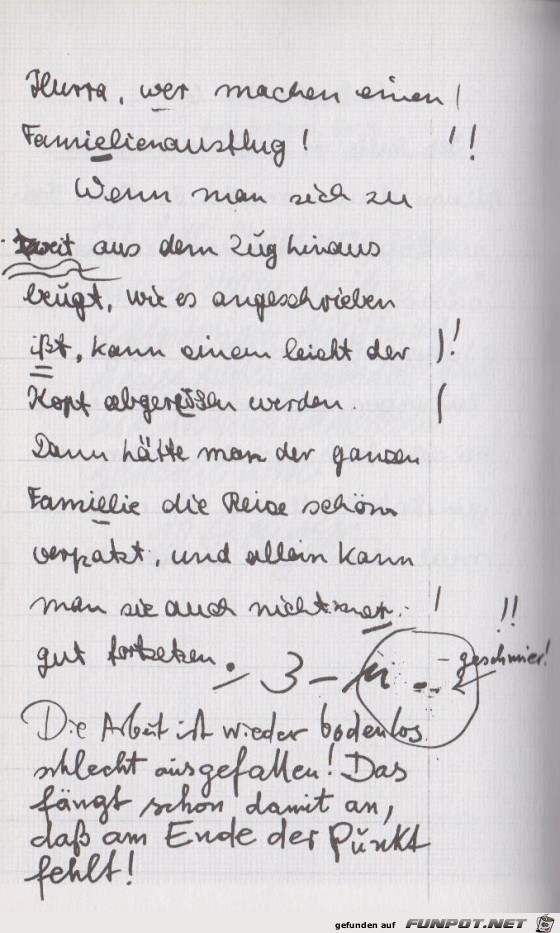 Hurra, wer machen einen !
Famielienausflug ! !!
Wenn man sich zu
weit aus dem Zug hinaus
beugt, wie es angeschrieben
ißt, kann einem leicht der )!
Kopf abgerißen werden (
Dann hätte man der ganzen
Famielie die Reise schön
verpatzt, und allein kann
man sie auch nicht mer ! !!
gut fortsetzen. 3 –
– geschmier!
Die Arbeit ist wieder bodenlos
schlecht ausgefallen! Das
fängt schon damit an,
daß am Ende der Punkt
fehlt!
gefunden auf FUNPOT.NET